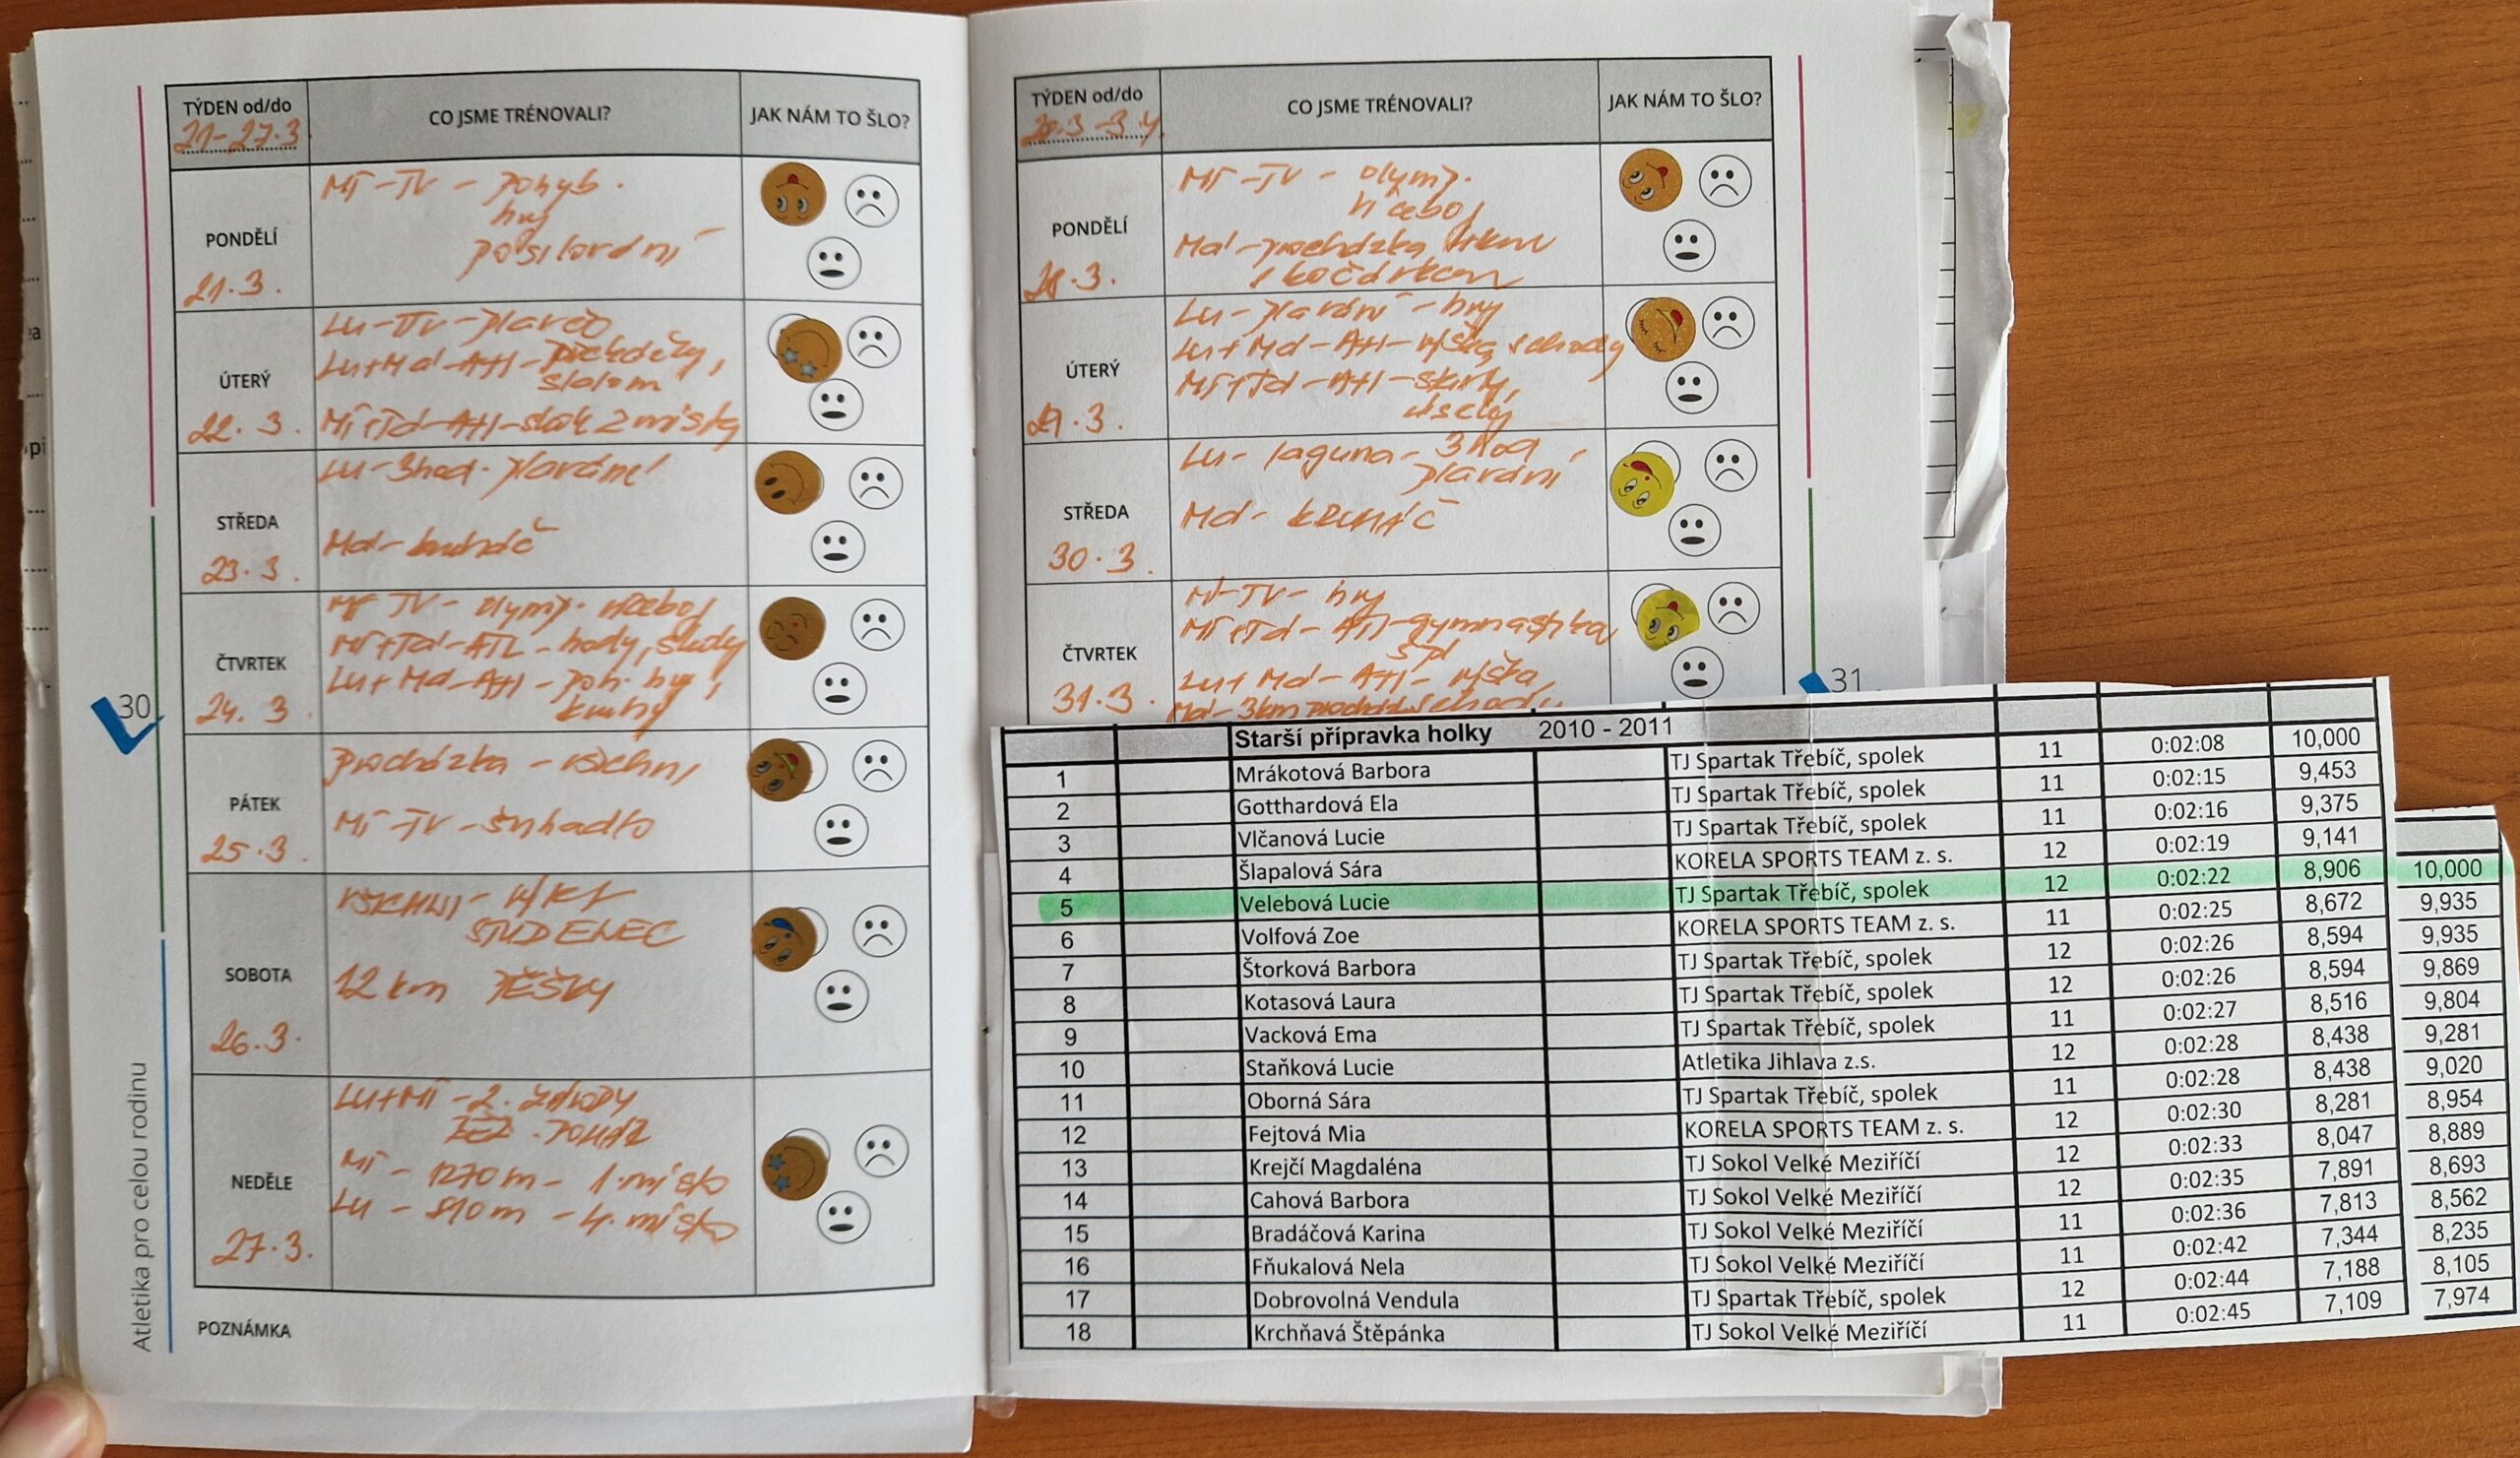 TÝDEN od/do
21-27.3.
CO JSME TRÉNOVALI?
JAK NÁM TO ŠLO?
PONDĚLÍ
21.3.
Mí-TV - pohyb.
hry
posilování
ÚTERÝ
22.3.
Lu-TV-plavčo
Lu+Md-Atl-překážky,
slalom
Mí+Td-Atl-skok z místa
STŘEDA
23.3.
Lu-3hod. plavání
Md-kruháč
ČTVRTEK
24.3.
Mí TV-olymp. víceboj
Mí+Td-ATL-hody, skoky
Lu+Md-Atl-poh. hry,
kruhy
PÁTEK
25.3.
procházka - všichni
Mí-TV-švihadlo
SOBOTA
26.3.
VŠICHNI - VÝLET
STUDENEC
12 km PĚŠKY
NEDĚLE
27.3.
Lu+Mí-2. ZÁVODY
Mí - 1270m - 1. místo
Lu - 810m - 4. místo
POZNÁMKA
30
Atletika pro celou rodinu
TÝDEN od/do
28.3-3.4.
CO JSME TRÉNOVALI?
JAK NÁM TO ŠLO?
PONDĚLÍ
28.3.
Mí-TV - olymp.
víceboj
Md-procházka 4km
s kočárkem
ÚTERÝ
29.3.
Lu-plavání-hry
Lu+Md-Atl-výška, schody
Mí+Td-Atl-
STŘEDA
30.3.
Lu-laguna-3hod
plavání
Md-KRUHÁČ
ČTVRTEK
31.3.
Mí-TV-hry
Mí+Td-Atl-gymnastika
Lu+Md-Atl-výška,
Md-3km
31
Starší přípravka holky 2010 - 2011
1 Mrákotová Barbora TJ Spartak Třebíč, spolek 11 0:02:08 10,000
2 Gotthardová Ela TJ Spartak Třebíč, spolek 11 0:02:15 9,453
3 Vlčanová Lucie TJ Spartak Třebíč, spolek 11 0:02:16 9,375
4 Šlapalová Sára KORELA SPORTS TEAM z. s. 12 0:02:19 9,141
5 Velebová Lucie TJ Spartak Třebíč, spolek 12 0:02:22 8,906 10,000
6 Volfová Zoe KORELA SPORTS TEAM z. s. 11 0:02:25 8,672 9,935
7 Štorková Barbora TJ Spartak Třebíč, spolek 12 0:02:26 8,594 9,935
8 Kotasová Laura TJ Spartak Třebíč, spolek 12 0:02:26 8,594 9,869
9 Vacková Ema TJ Spartak Třebíč, spolek 11 0:02:27 8,516 9,804
10 Staňková Lucie Atletika Jihlava z.s. 12 0:02:28 8,438 9,281
11 Oborná Sára TJ Spartak Třebíč, spolek 11 0:02:28 8,438 9,020
12 Fejtová Mia KORELA SPORTS TEAM z. s. 12 0:02:30 8,281 8,954
13 Krejčí Magdaléna TJ Sokol Velké Meziříčí 12 0:02:33 8,047 8,889
14 Cahová Barbora TJ Sokol Velké Meziříčí 12 0:02:35 7,891 8,693
15 Bradáčová Karina TJ Sokol Velké Meziříčí 11 0:02:36 7,813 8,562
16 Fňukalová Nela TJ Sokol Velké Meziříčí 11 0:02:42 7,344 8,235
17 Dobrovolná Vendula TJ Spartak Třebíč, spolek 12 0:02:44 7,188 8,105
18 Krchňavá Štěpánka TJ Sokol Velké Meziříčí 11 0:02:45 7,109 7,974